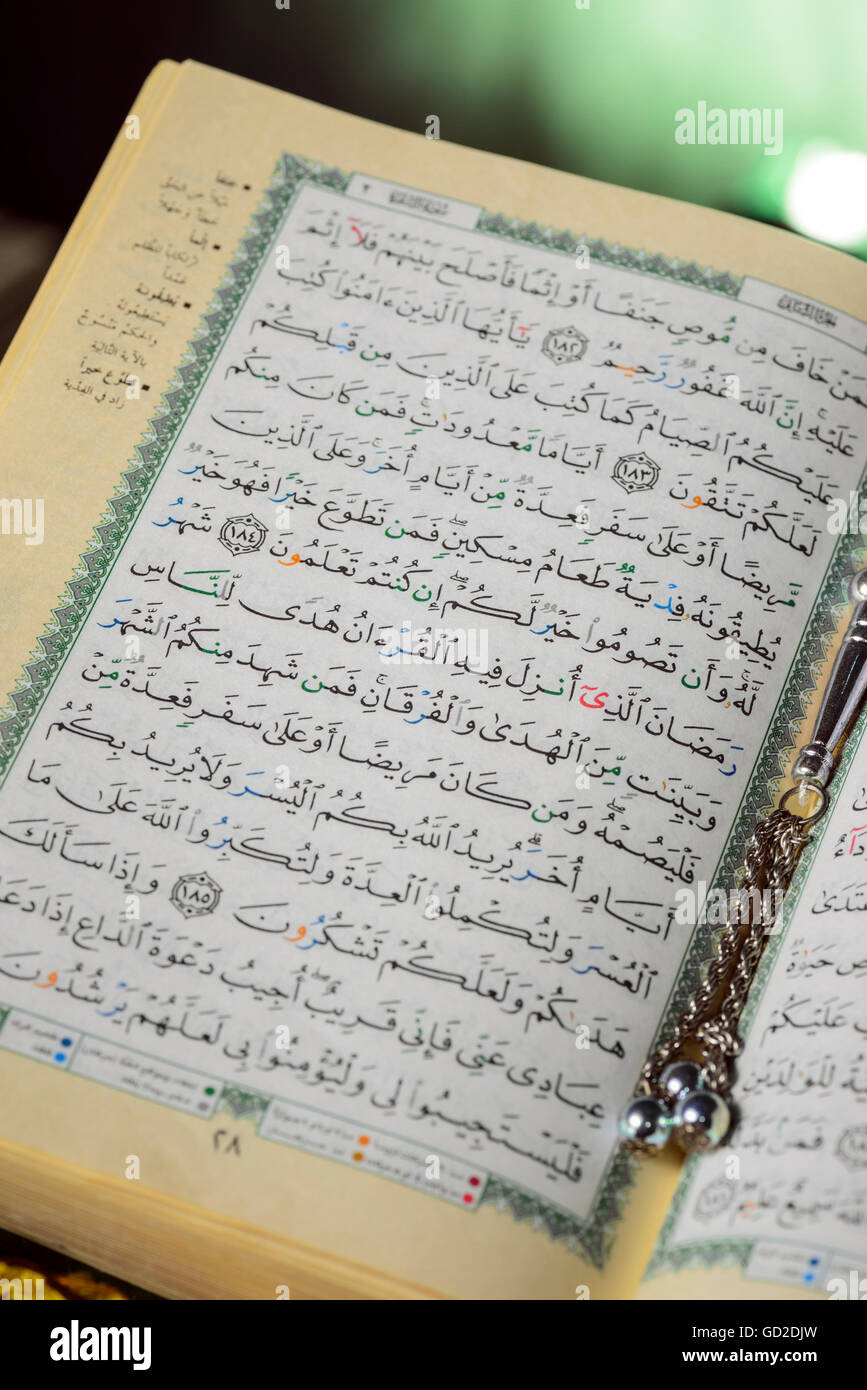 فَمَنْ خَافَ مِن مُّوصٍ جَنَفًا أَوْ إِثْمًا فَأَصْلَحَ بَيْنَهُمْ فَلَآ إِثْمَ
عَلَيْهِ إِنَّ ٱللَّهَ غَفُورٌ رَّحِيمٌ ١٨٢ يَٰٓأَيُّهَا ٱلَّذِينَ ءَامَنُوا۟ كُتِبَ
عَلَيْكُمُ ٱلصِّيَامُ كَمَا كُتِبَ عَلَى ٱلَّذِينَ مِن قَبْلِكُمْ
لَعَلَّكُمْ تَتَّقُونَ ١٨٣ أَيَّامًا مَّعْدُودَٰتٍ فَمَن كَانَ مِنكُم
مَّرِيضًا أَوْ عَلَىٰ سَفَرٍ فَعِدَّةٌ مِّنْ أَيَّامٍ أُخَرَ وَعَلَى ٱلَّذِينَ
يُطِيقُونَهُۥ فِدْيَةٌ طَعَامُ مِسْكِينٍ فَمَن تَطَوَّعَ خَيْرًا فَهُوَ خَيْرٌ
لَّهُۥ وَأَن تَصُومُوا۟ خَيْرٌ لَّكُمْ إِن كُنتُمْ تَعْلَمُونَ ١٨٤ شَهْرُ
رَمَضَانَ ٱلَّذِىٓ أُنزِلَ فِيهِ ٱلْقُرْءَانُ هُدًى لِّلنَّاسِ
وَبَيِّنَٰتٍ مِّنَ ٱلْهُدَىٰ وَٱلْفُرْقَانِ فَمَن شَهِدَ مِنكُمُ ٱلشَّهْرَ
فَلْيَصُمْهُ وَمَن كَانَ مَرِيضًا أَوْ عَلَىٰ سَفَرٍ فَعِدَّةٌ مِّنْ
أَيَّامٍ أُخَرَ يُرِيدُ ٱللَّهُ بِكُمُ ٱلْيُسْرَ وَلَا يُرِيدُ بِكُمُ
ٱلْعُسْرَ وَلِتُكْمِلُوا۟ ٱلْعِدَّةَ وَلِتُكَبِّرُوا۟ ٱللَّهَ عَلَىٰ مَا
هَدَىٰكُمْ وَلَعَلَّكُمْ تَشْكُرُونَ ١٨٥ وَإِذَا سَأَلَكَ
عِبَادِى عَنِّى فَإِنِّى قَرِيبٌ أُجِيبُ دَعْوَةَ ٱلدَّاعِ إِذَا دَعَانِ
فَلْيَسْتَجِيبُوا۟ لِى وَلْيُؤْمِنُوا۟ بِى لَعَلَّهُمْ يَرْشُدُونَ
٢٨
جنفاً
إثماً
يطيقونه
يستطيعونه
والحكم منسوخ
بالآية التالية
تطوع خيراً
زاد في الفدية
حَيَوٰةٌ
عَلَيْكُمْ
لِلْوَٰلِدَيْنِ
فَمَنۢ
سَمِيعٌ عَلِيمٌ
alamy
Image ID: GD2DJW
www.alamy.com